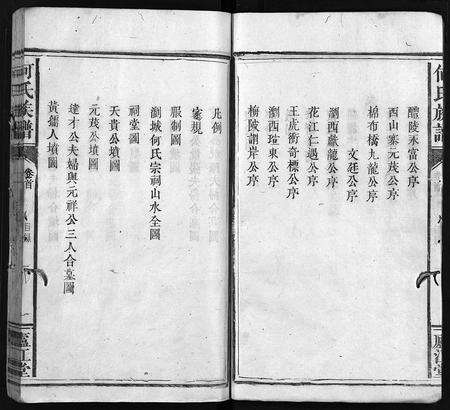 何氏族譜
醴陵永富公序
西山寨元茂公序
棉布橋九龍公序
文廷公序
瀏西獻龍公序
花江仁遇公序
王虎衝奇標公序
瀏西瑄東公序
梅陵謂岸公序
廬江堂
凡例
家規
服制圖
瀏城何氏宗祠山水全圖
祠堂圖
天貴公墳圖
元茂公墳圖
達才公夫婦與元祥公三人合墓圖
黃孺人墳圖
何氏族譜
卷首
目錄
一
廬江堂